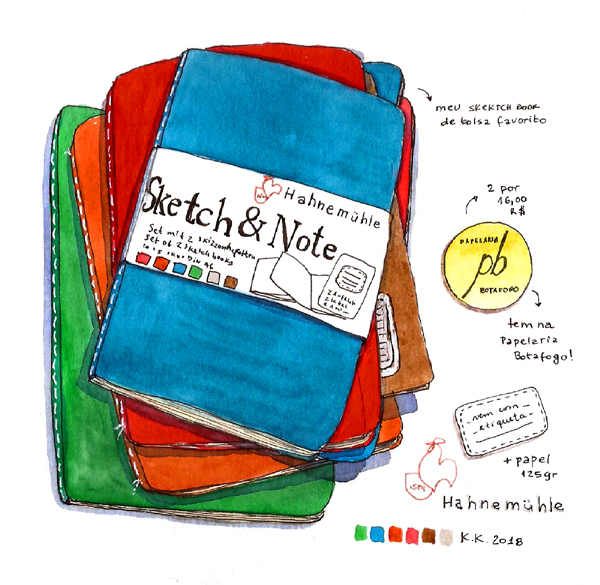 meu SKETCH BOOK
de bolsa favorito
2 por
16,00
R$
PAPELARIA
pb
BOTAFOGO
tem na
Papelaria
Botafogo!
Hahnemühle
Sketch & Note
Set mit 2
Set of 2 Sketchbooks
vem com
etiqueta
+ papel
125gr
1584
Hahnemühle
K.K. 2018